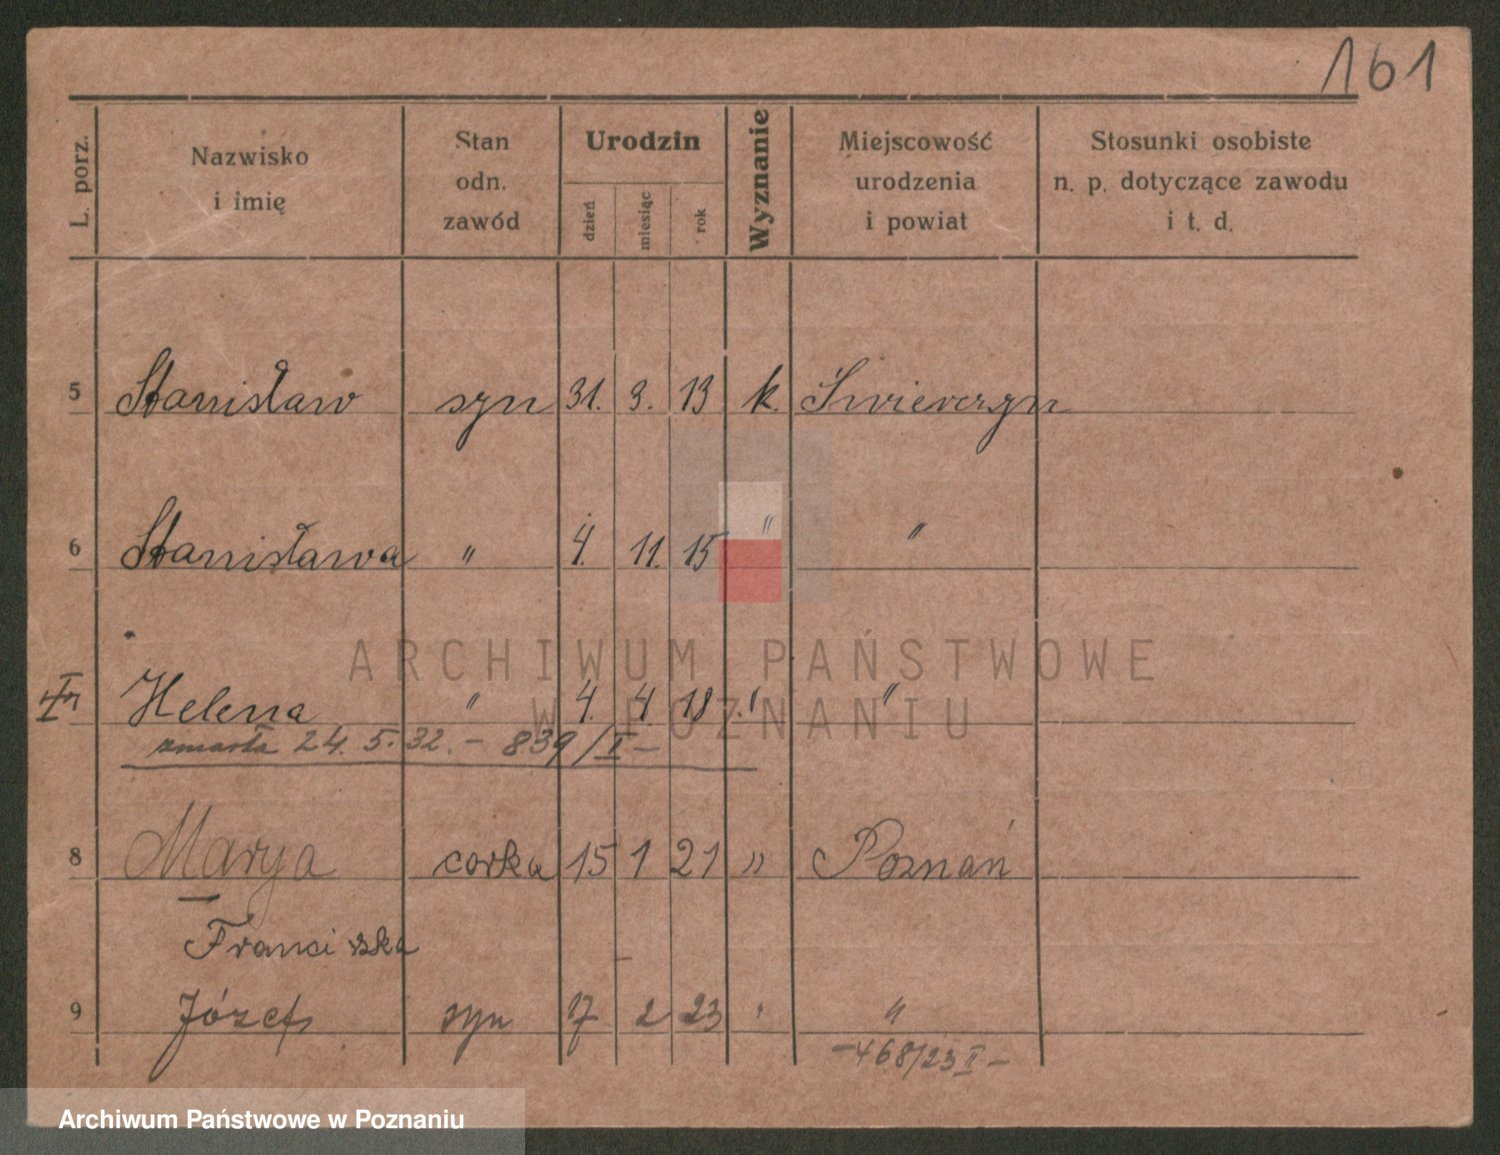 161
L. porz. Nazwisko i imię Stan odn. zawód Urodzin dzień miesiąc rok Wyznanie Miejscowość urodzenia i powiat Stosunki osobiste n. p. dotyczące zawodu i t. d.
5 Stanisław syn 31. 3. 13 k. Świerczyn
6 Stanisława " 4. 11. 15 " "
ARCHIWUM PAŃSTWOWE
W POZNANIU
Helena " 4. 4 18. " "
zmarła 24. 5. 32. - 839/I -
8 Marya corka 15 1 21 " Poznań
Franciszka
9 Józef syn 17 2 23 " "
- 468/23 I -
Archiwum Państwowe w Poznaniu